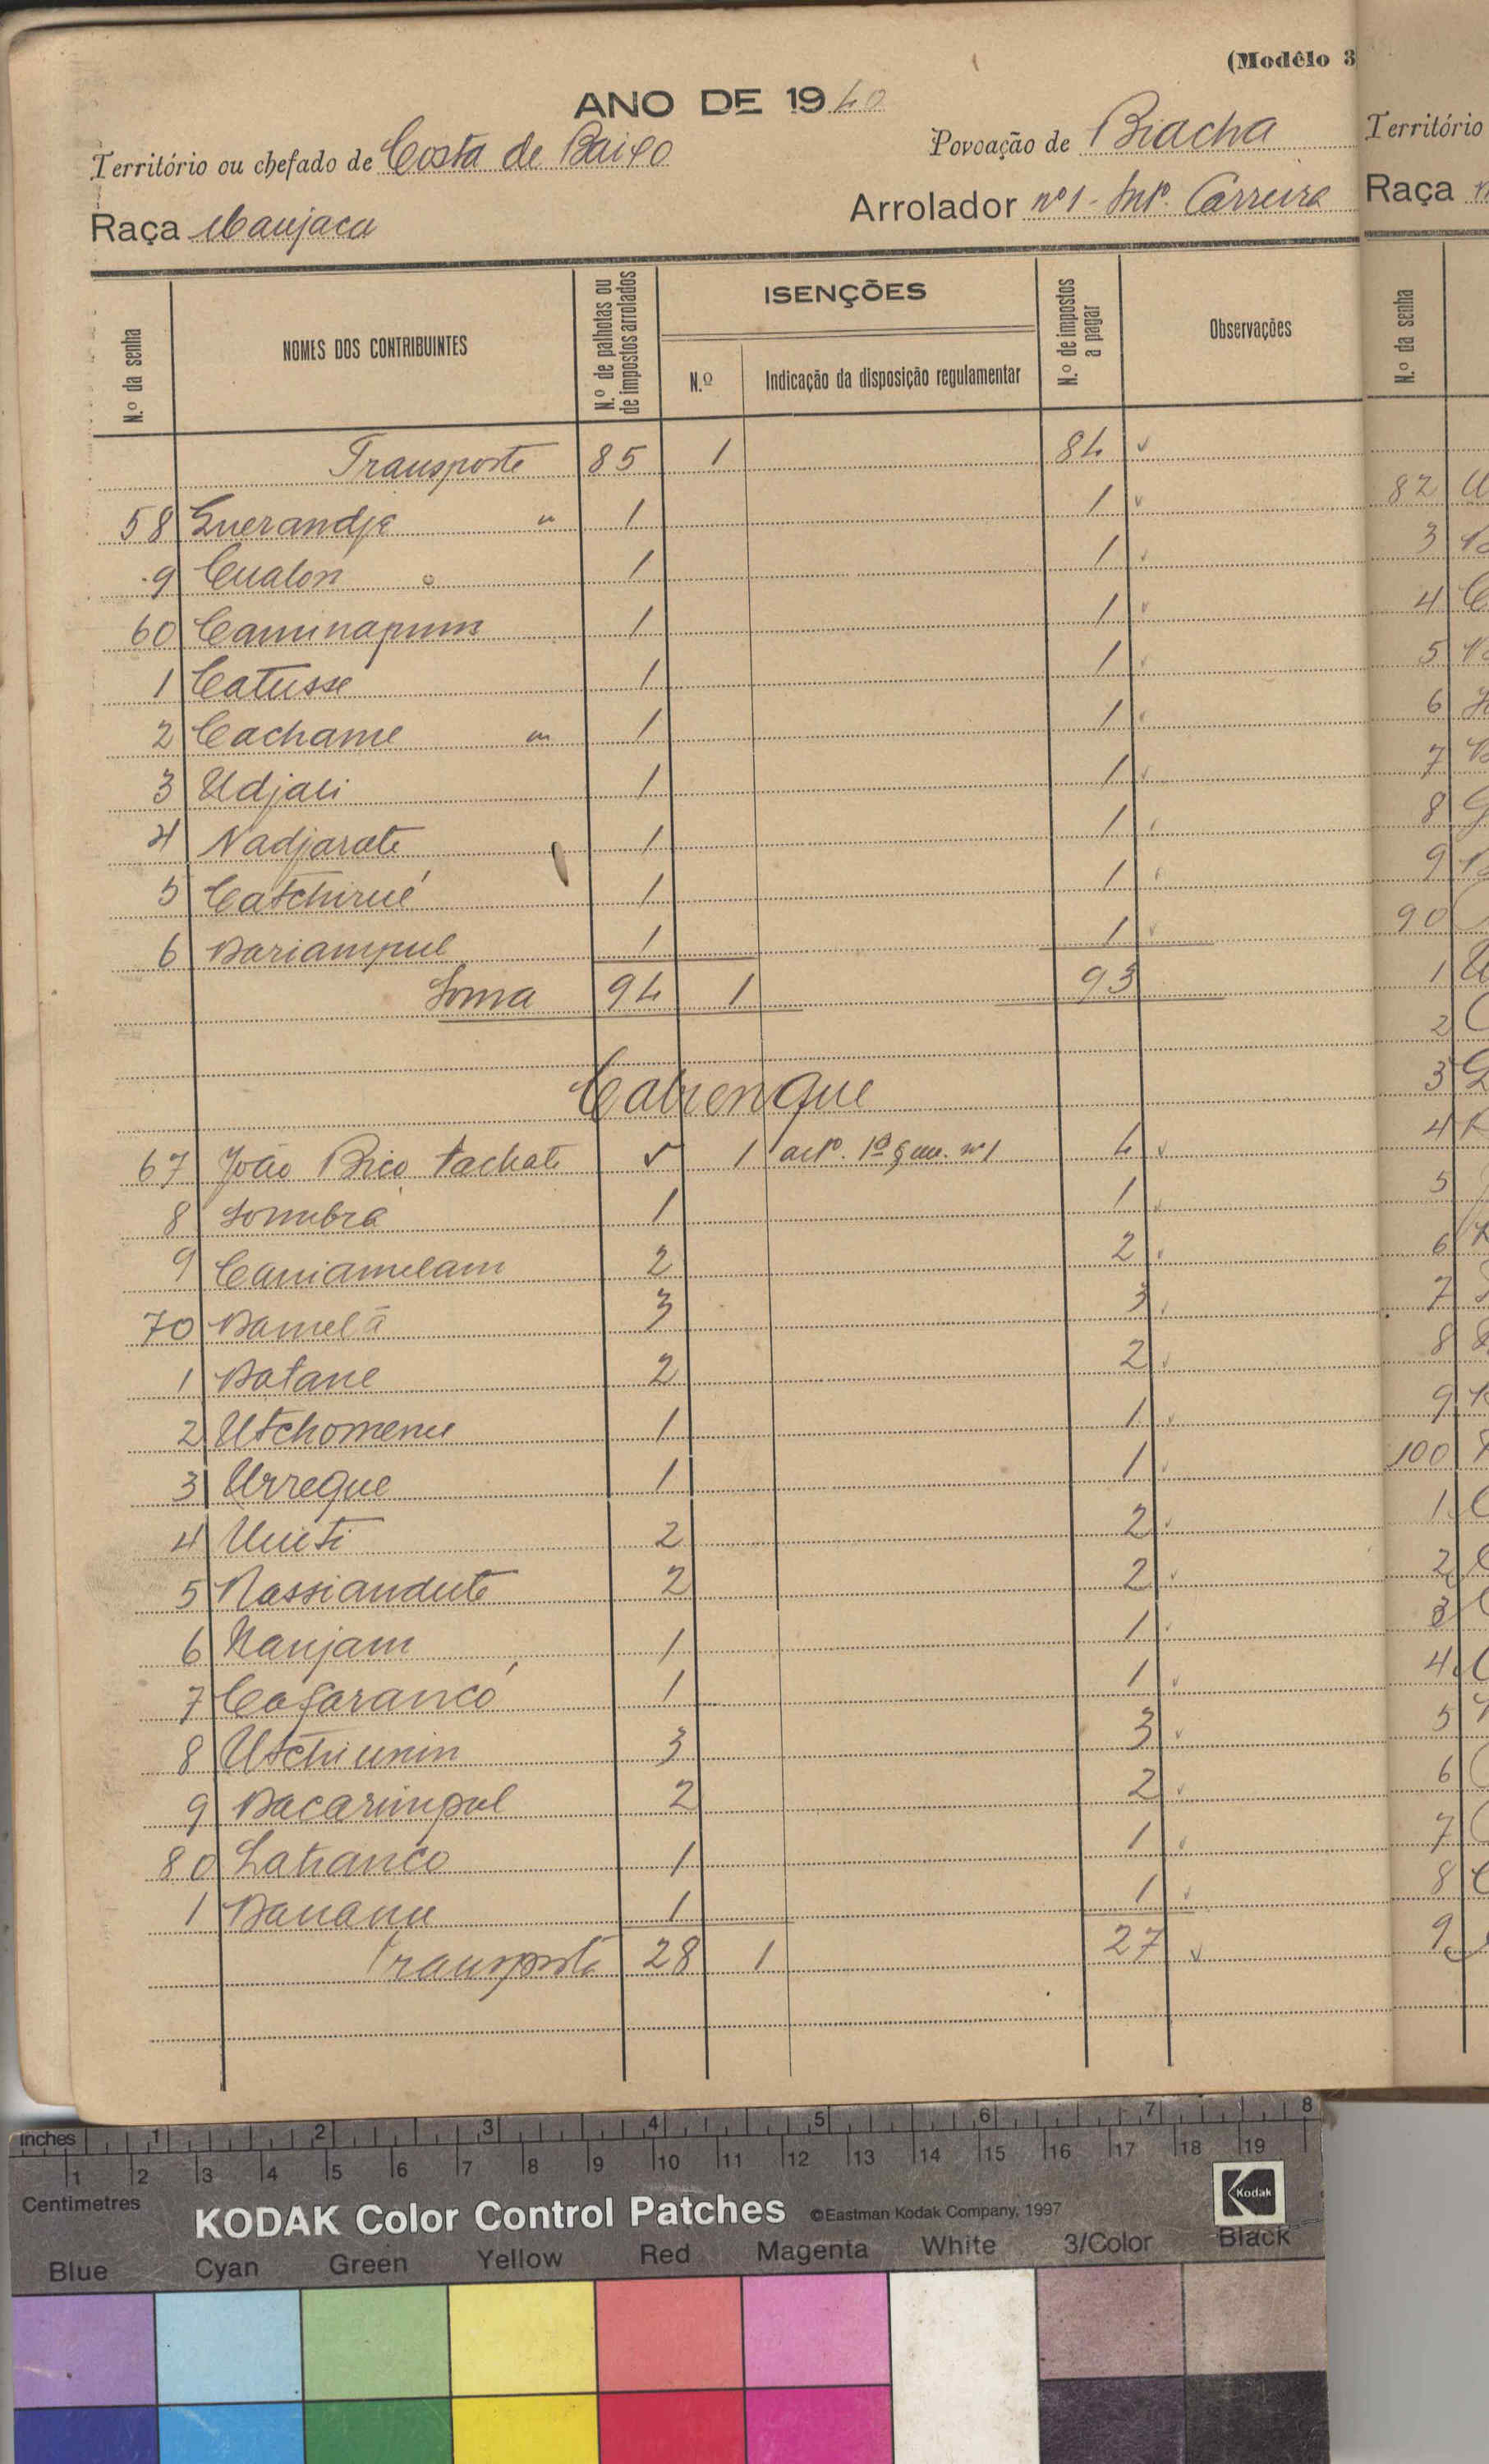 (Modêlo 3
ANO DE 1940
Território ou chefado de Costa de Baixo
Povoação de Biacha
Raça Manjaca
Arrolador nº1 - Intº. Carreira
N.º da senha
NOMES DOS CONTRIBUINTES
N.º de palhotas ou de impostos arrolados
ISENÇÕES
N.º
Indicação da disposição regulamentar
N.º de impostos a pagar
Observações
Transporte 85 1 84 v
58 Guerandje " 1 1 v
9 Cualon o 1 1 v
60 Caminapum 1 1 v
1 Catusse 1 1 v
2 Cachame " 1 1 v
3 Udjali 1 1 v
4 Nadjarate 1 1 v
5 Catchirué 1 1 v
6 Bariampul 1 1 v
Soma 94 1 93
Cabienque
67 João Bico Tachate 5 1 artº. 1º nº1 4 v
8 Sombra 1 1 v
9 Caniamelam 2 2 v
70 Bamelã 3 3 v
1 Batane 2 2 v
2 Utchomenu 1 1 v
3 Urreque 1 1 v
4 Unieti 2 2 v
5 Nassiandute 2 2 v
6 Nanjam 1 1 v
7 Cafarancó 1 1 v
8 Utchiunin 3 3 v
9 Bacarimpul 2 2 v
80 Latianco 1 1 v
1 Banana 1 1 v
Transporte 28 1 27 v
Território
Raça
N.º da senha
82
3
4
5
6
7
8
9
90
1
2
3
4
5
6
7
8
9
100
1
2
3
4
5
6
7
8
9
inches 1 2 3 4 5 6 7 8
1 2 3 4 5 6 7 8 9 10 11 12 13 14 15 16 17 18 19
Centimetres
KODAK Color Control Patches ©Eastman Kodak Company, 1997
Kodak
Blue Cyan Green Yellow Red Magenta White 3/Color Black